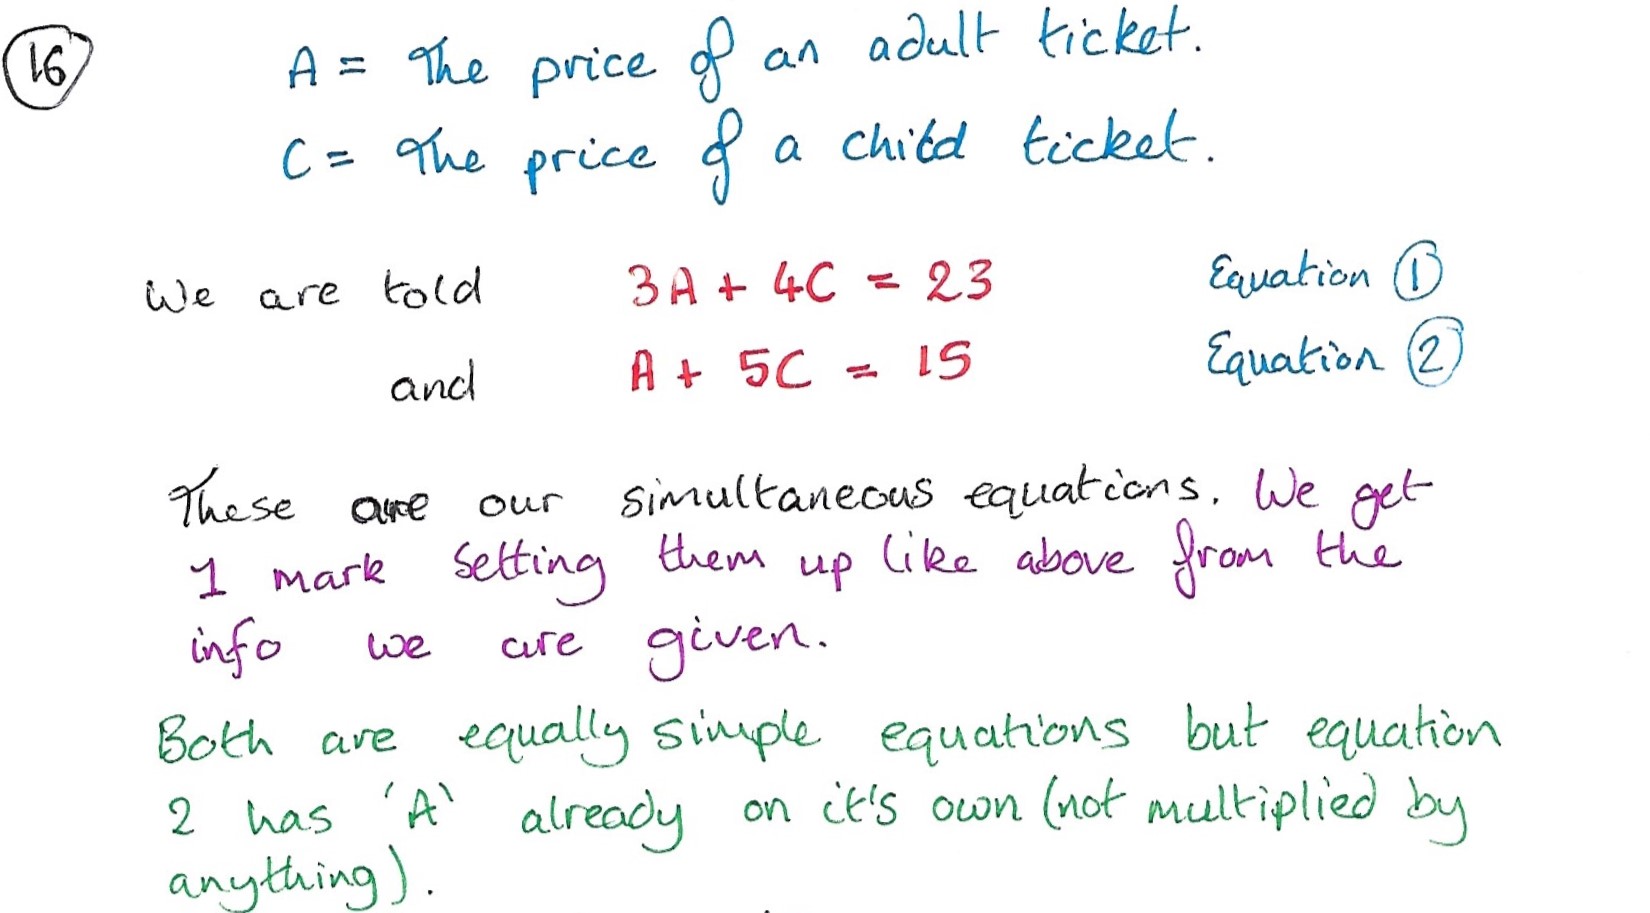 16 A = The price of an adult ticket.
C = The price of a child ticket.
We are told 3A + 4C = 23 Equation 1
and A + 5C = 15 Equation 2
These are our simultaneous equations. We get
1 mark setting them up like above from the
info we are given.
Both are equally simple equations but equation
2 has 'A' already on it's own (not multiplied by
anything).